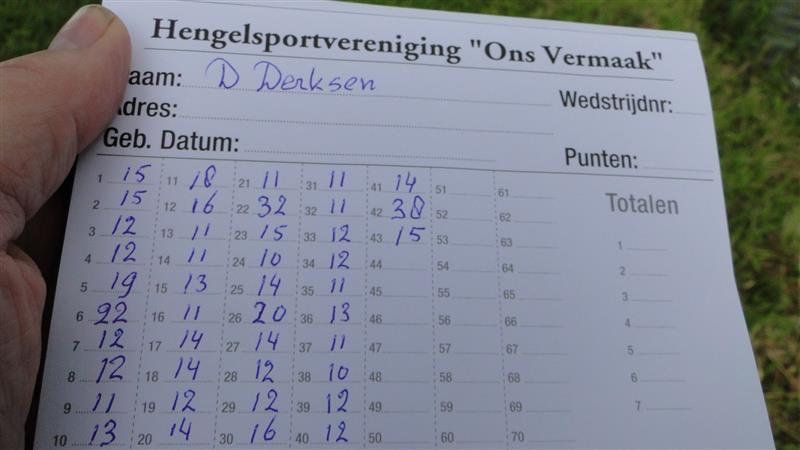 Hengelsportvereniging "Ons Vermaak"
Naam: D Derksen Wedstrijdnr:
Adres:
Geb. Datum: Punten:
1 15 11 18 21 11 31 11 41 14 51 61 Totalen
2 15 12 16 22 32 32 11 42 38 52 62
3 12 13 11 23 15 33 12 43 15 53 63 1
4 12 14 11 24 10 34 12 44 54 64 2
5 19 15 13 25 14 35 11 45 55 65 3
6 22 16 11 26 20 36 13 46 56 66 4
7 12 17 14 27 14 37 11 47 57 67 5
8 12 18 14 28 12 38 10 48 58 68 6
9 11 19 12 29 12 39 12 49 59 69 7
10 13 20 14 30 16 40 12 50 60 70